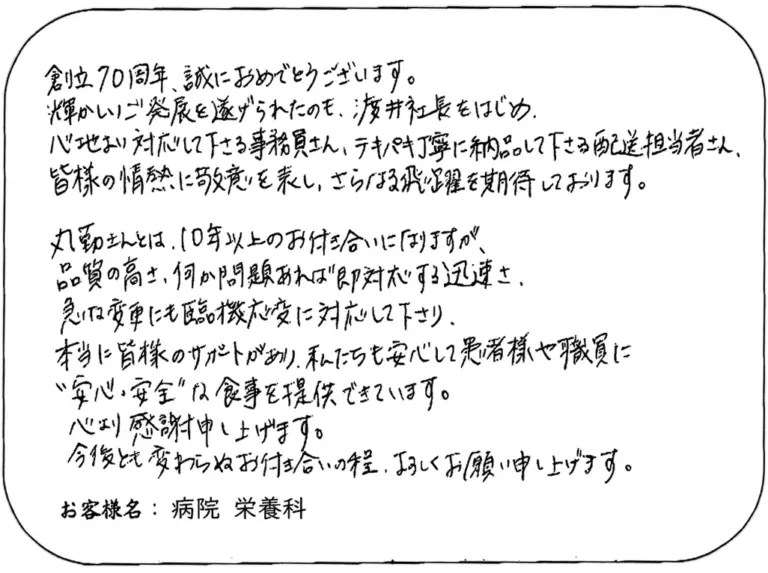 創立70周年、誠におめでとうございます。
輝かしいご発展を遂げられたのも、渡井社長をはじめ、
心地よい対応して下さる事務員さん、テキパキ丁寧に納品して下さる配送担当者さん、
皆様の情熱に敬意を表し、さらなる飛躍を期待しております。
丸勤さんとは、10年以上のお付き合いになりますが、
品質の高さ、何か問題あれば即対応する迅速さ、
急な変更にも臨機応変に対応して下さり、
本当に皆様のサポートがあり、私たちも安心して患者様や職員に
"安心・安全"な食事を提供できています。
心より感謝申し上げます。
今後とも変わらぬお付き合いの程、よろしくお願い申し上げます。
お客様名： 病院 栄養科